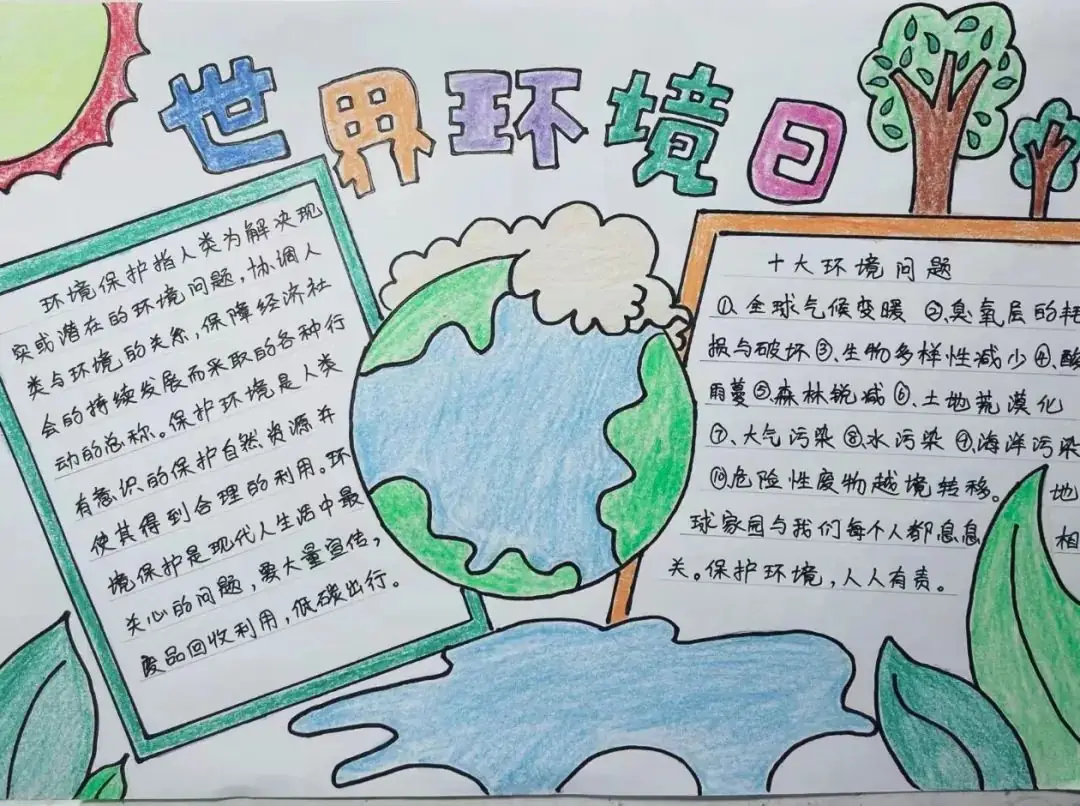 世界环境日
环境保护指人类为解决现
实或潜在的环境问题，协调人
类与环境的关系，保障经济社
会的持续发展而采取的各种行
动的总称。保护环境是人类
有意识的保护自然资源并
使其得到合理的利用。环
境保护是现代人生活中最
关心的问题，要大量宣传，
废品回收利用，低碳出行。
十大环境问题
①、全球气候变暖 ②、臭氧层的耗
损与破坏③、生物多样性减少④、酸
雨蔓⑤、森林锐减⑥、土地荒漠化
⑦、大气污染⑧、水污染⑨、海洋污染
⑩、危险性废物越境转移。 地
球家园与我们每个人都息息 相
关。保护环境，人人有责。